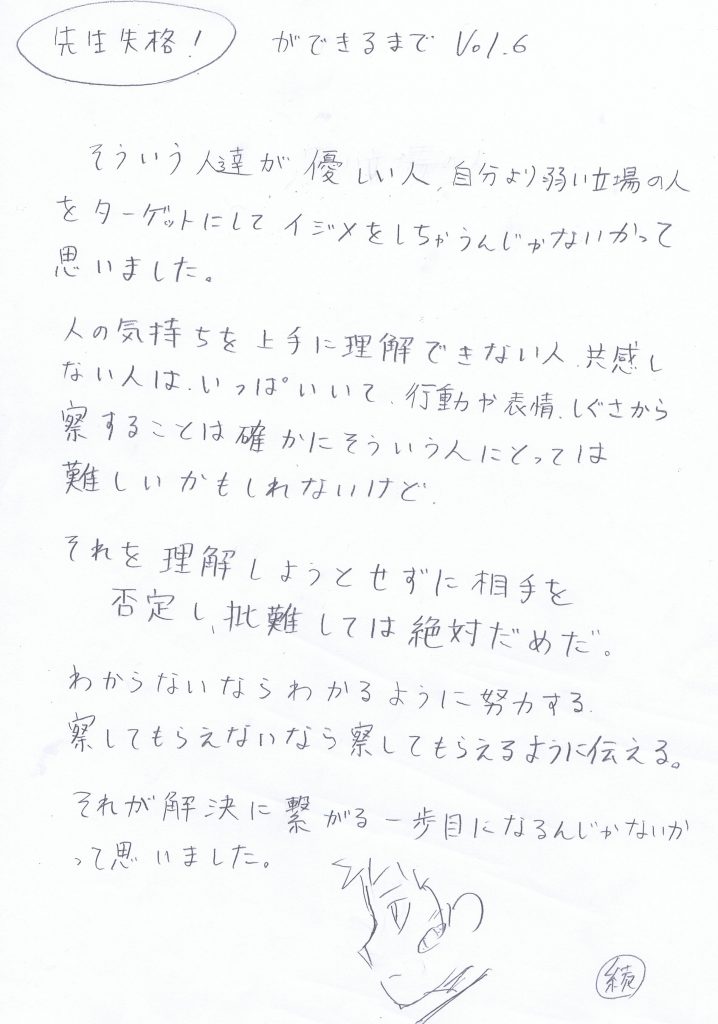 先生失格! ができるまで Vol.6
そういう人達が優しい人、自分より弱い立場の人
をターゲットにしてイジメをしちゃうんじゃないかって
思いました。
人の気持ちを上手に理解できない人、共感し
ない人は、いっぱいいて、行動や表情、しぐさから
察することは確かにそういう人にとっては
難しいかもしれないけど、
それを理解しようとせずに相手を
否定し、批難しては絶対だめだ。
わからないならわかるように努力する、
察してもらえないなら察してもらえるように伝える。
それが解決に繋がる一歩目になるんじゃないか
って思いました。
続